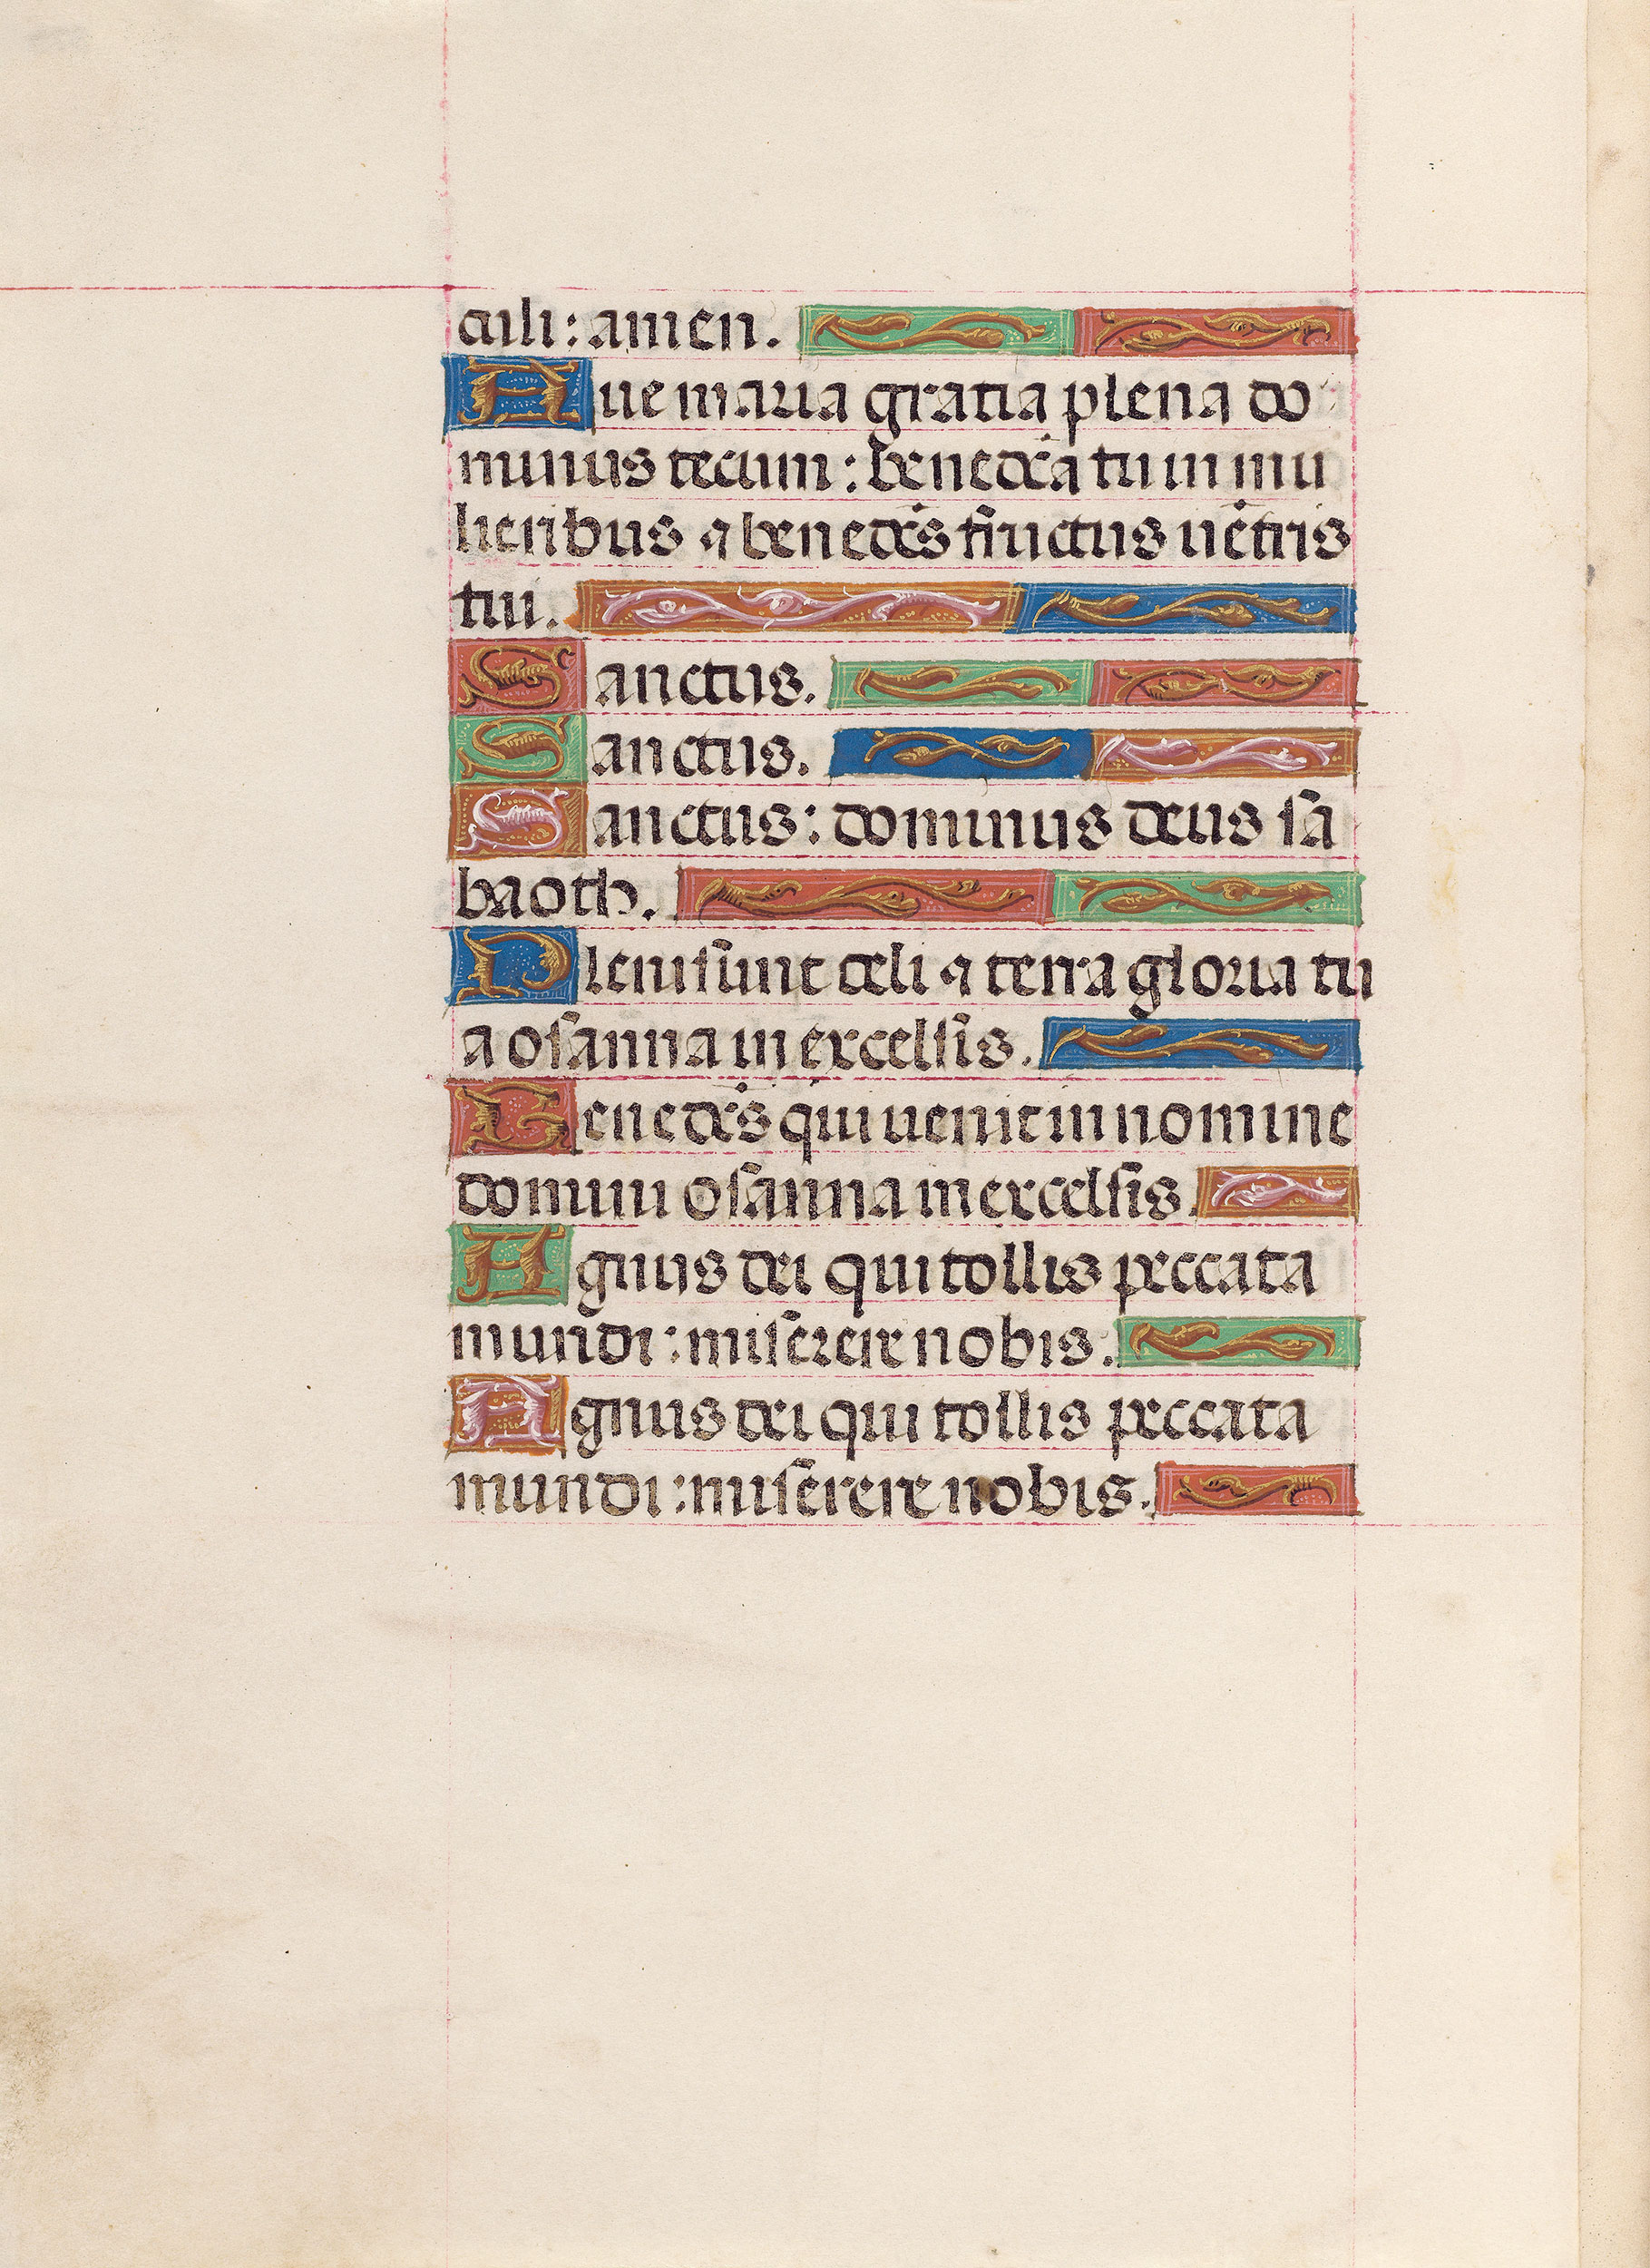 culi: amen.
Aue maria gratia plena do
minus tecum: benedc̃a tu in mu
lieribus ⁊ benedc̃s fructus uẽtris
tui.
Sanctus.
Sanctus.
Sanctus: dominus deus sa
baoth.
Pleni sunt celi ⁊ terra gloria tu
a osanna in excelsis.
Benedc̃s qui uenit in nomine
domini osanna in excelsis.
Agnus dei qui tollis peccata
mundi: miserere nobis.
Agnus dei qui tollis peccata
mundi: miserere nobis.